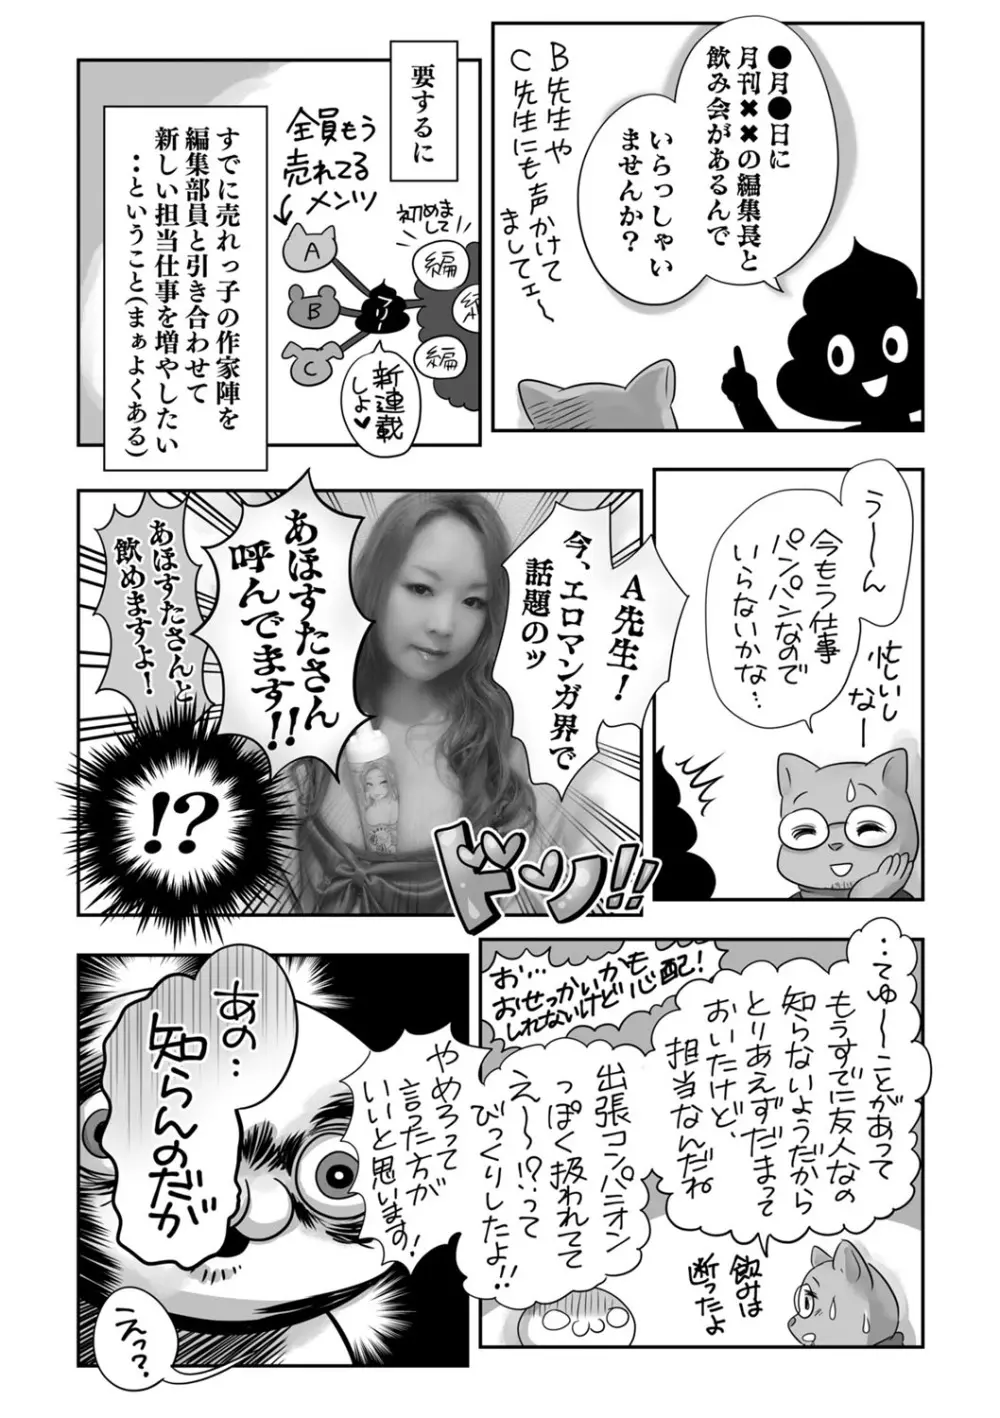 ●月●日に
月刊✖✖の編集長と
飲み会があるんで
いらっしゃい
ませんか？
B先生や
C先生にも声かけて
ましてェ〜
要するに
全員もう
売れてる
メンツ
A
B
C
マリー
初めま
して
編
編
編
新連載
しよ♥
すでに売れっ子の作家陣を
編集部員と引き合わせて
新しい担当仕事を増やしたい
‥ということ(まぁよくある)
う〜〜ん
今もう仕事
パンパンなので
いらないかな…
忙しいし
なー
A先生！
今、エロマンガ界で
話題のッ
あほすたさん
呼んでます!!
あほすたさんと
飲めますよ！
ドンッ!!
!?
‥てゆ〜ことがあって
もうすでに友人なの
知らないようだから
とりあえずだまって
おいたけど、
担当なんだね
お…
おせっかいかも
しれないけど心配！
飲みは
断ったよ
出張コンパニオン
っぽく扱われてて
え〜〜!?って
びっくりしたよ!!
やめろって
言った方が
いいと思います！
あの…
知らんのだが
えっ？